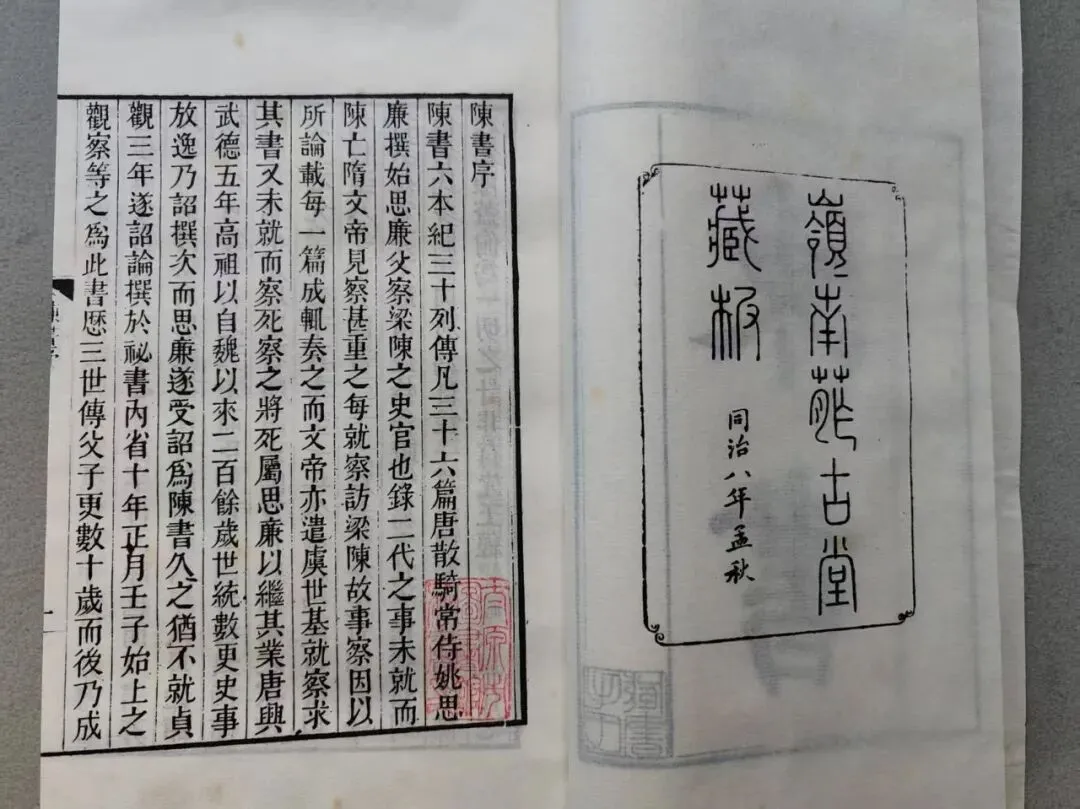 嶺南葄古堂
藏板
同治八年孟秋
陳書序
陳書六本紀三十列傳凡三十六篇唐散騎常侍姚思
廉撰始思廉父察梁陳之史官也錄二代之事未就而
陳亡隋文帝見察甚重之每就察訪梁陳故事察因以
所論載每一篇成輒奏之而文帝亦遣虞世基就察求
其書又未就而察死察之將死屬思廉以繼其業唐興
武德五年高祖以自魏以來二百餘歲世統數更史事
放逸乃詔撰次而思廉遂受詔爲陳書久之猶不就貞
觀三年遂詔論撰於祕書內省十年正月壬子始上之
觀察等之爲此書歷三世傳父子更數十歲而後乃成
一